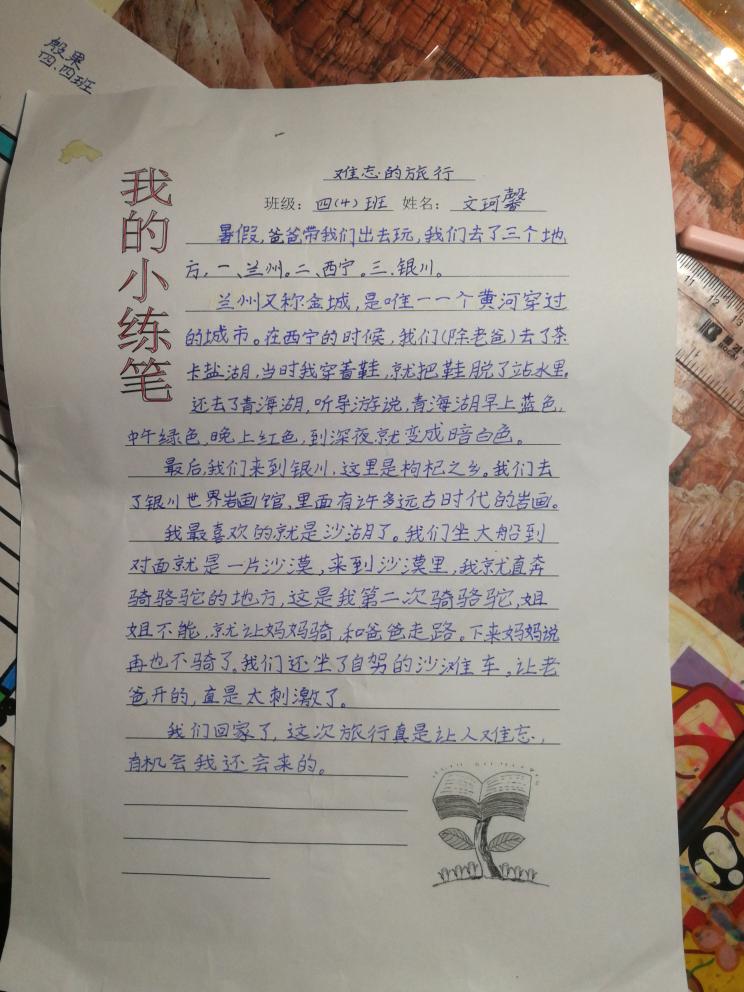 般果
四.四班
我的小练笔
难忘的旅行
班级：四(4)班 姓名：文珂馨
暑假，爸爸带我们出去玩，我们去了三个地
方，一、兰州。二、西宁。三、银川。
兰州又称金城，是唯一一个黄河穿过
的城市。在西宁的时候，我们（除老爸）去了茶
卡盐湖，当时我穿着鞋，就把鞋脱了站水里。
还去了青海湖，听导游说，青海湖早上蓝色，
中午绿色，晚上红色，到深夜就变成暗白色。
最后，我们来到银川，这里是枸杞之乡。我们去
了银川世界岩画馆，里面有许多远古时代的岩画。
我最喜欢的就是沙湖了。我们坐大船到
对面就是一片沙漠，来到沙漠里，我就直奔
骑骆驼的地方，这是我第二次骑骆驼，姐
姐不能，就让妈妈骑，和爸爸走路。下来妈妈说
再也不骑了。我们还坐了自驾的沙滩车，让老
爸开的，真是太刺激了。
我们回家了，这次旅行真是让人难忘，
有机会我还会来的。
11 12 13